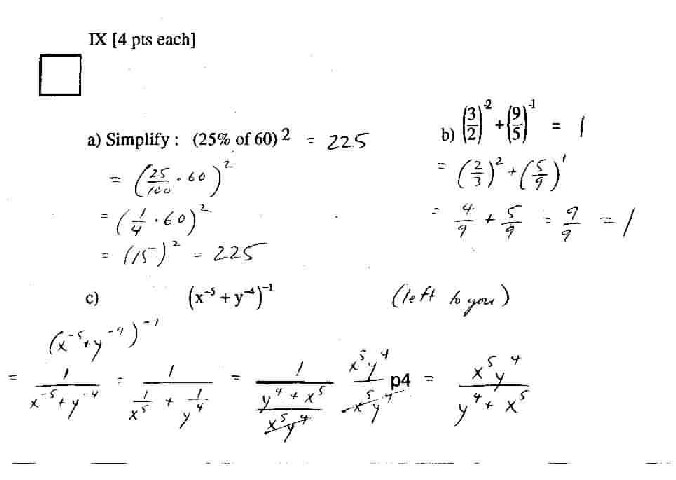 IX [4 pts each]
a) Simplify : (25% of 60)² = 225
= (25/100 · 60)²
= (1/4 · 60)²
= (15)² = 225
b) (3/2)⁻² + (9/5)⁻¹ = 1
= (2/3)² + (5/9)¹
= 4/9 + 5/9 = 9/9 = 1
c) (x⁻⁵ + y⁻⁴)⁻¹ (left to you)
(x⁻⁵+y⁻⁴)⁻¹
= 1/(x⁻⁵+y⁻⁴) = 1/(1/x⁵ + 1/y⁴) = 1/((y⁴+x⁵)/(x⁵y⁴)) x⁵y⁴/x⁵y⁴ p4 = x⁵y⁴/(y⁴+x⁵)